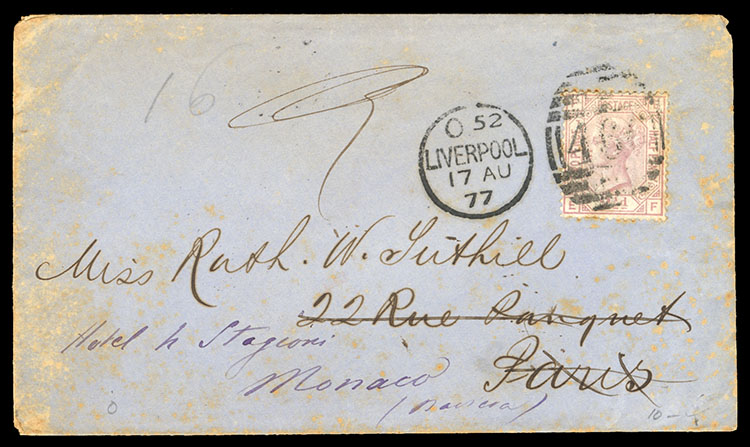 16
O 52
LIVERPOOL
17 AU
77
466
E F
Miss Ruth. W. Tuthill
22 Rue Panquet
Paris
Hotel 4 Stagioni
Monaco
(Baviera)